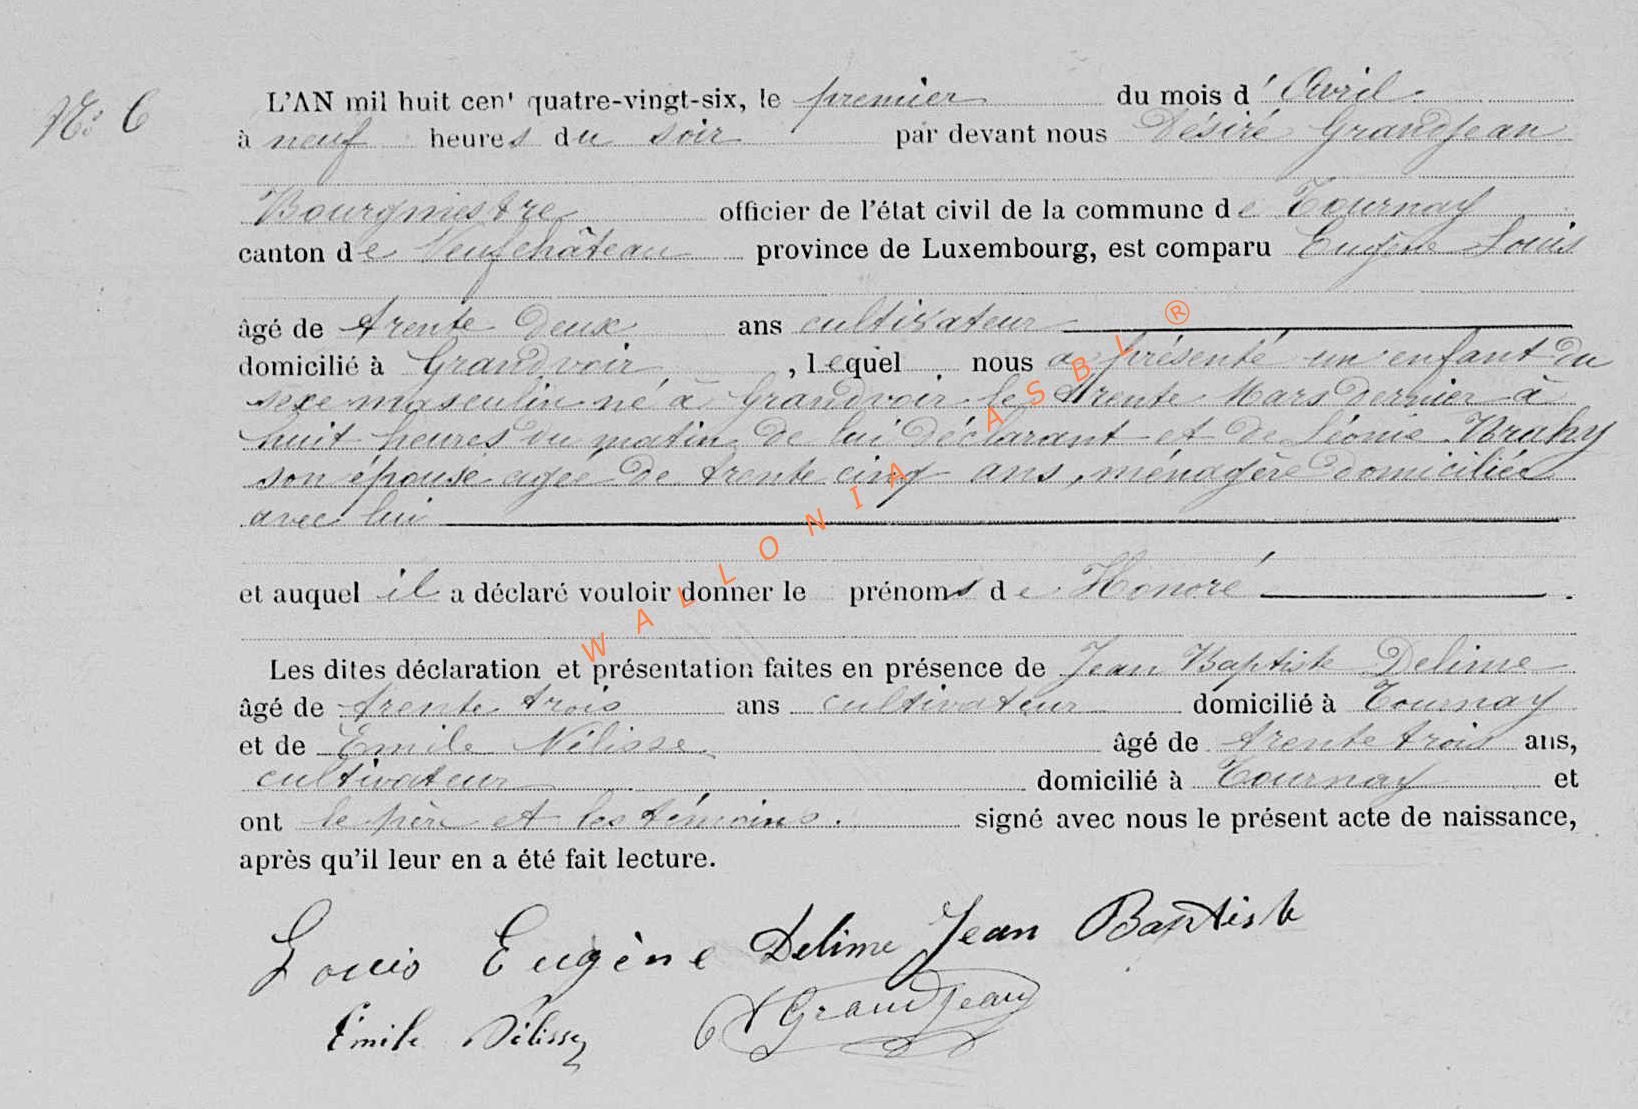 N° 6
L'AN mil huit cent quatre-vingt-six, le premier du mois d'Avril
à neuf heures du soir par devant nous Désiré Grandjean
Bourgmestre officier de l'état civil de la commune de Tournay
canton de Neufchâteau province de Luxembourg, est comparu Eugène Louis
âgé de trente deux ans cultivateur
domicilié à Grandvoir, lequel nous a présenté un enfant du
sexe masculin né à Grandvoir le trente Mars dernier à
huit heures du matin de lui déclarant et de Léonie
son épouse agée de trente cinq ans, ménagère domiciliée
avec lui
et auquel il a déclaré vouloir donner le prénoms de Honoré.
Les dites déclaration et présentation faites en présence de Jean Baptiste Delime
âgé de trente trois ans cultivateur domicilié à Tournay
et de Emile Nélisse âgé de trente trois ans,
cultivateur domicilié à Tournay et
ont le père et les témoins. signé avec nous le présent acte de naissance,
après qu'il leur en a été fait lecture.
Louis Eugène Delime Jean Baptiste
Emile Nélisse Grandjean
WALLONIA ASBL ®